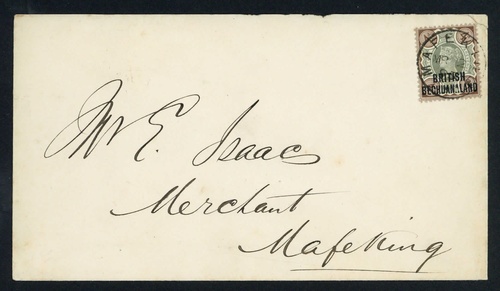 MAFEKING
BRITISH
BECHUANALAND
Mr E. Isaacs
Merchant
Mafeking